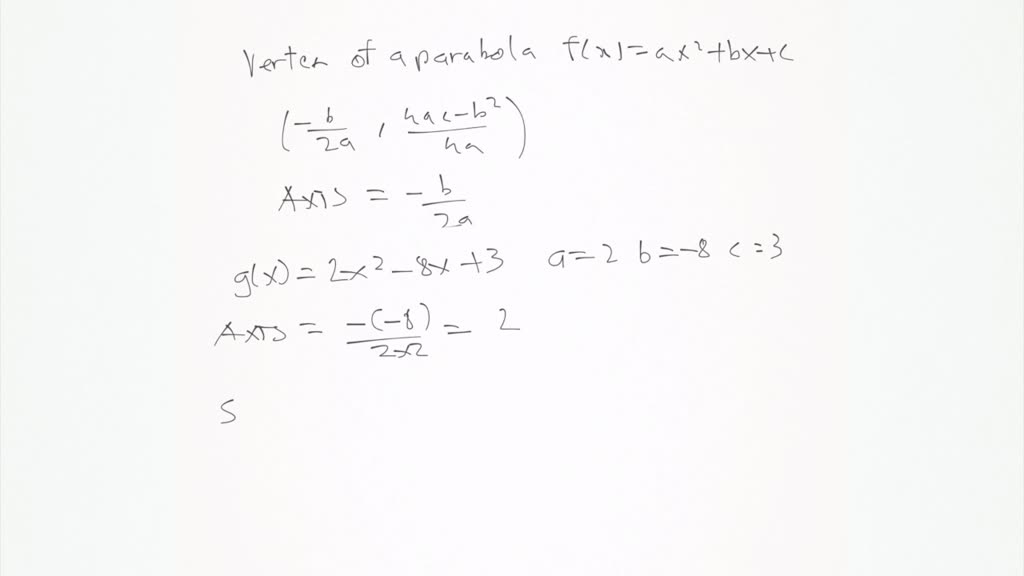 Vertex of a parabola f(x)=ax²+bx+c
(-b/2a, 4ac-b²/4a)
Axis = -b/2a
g(x)=2x²-8x+3 a=2 b=-8 c=3
Axis = -(-8)/2×2 = 2
S